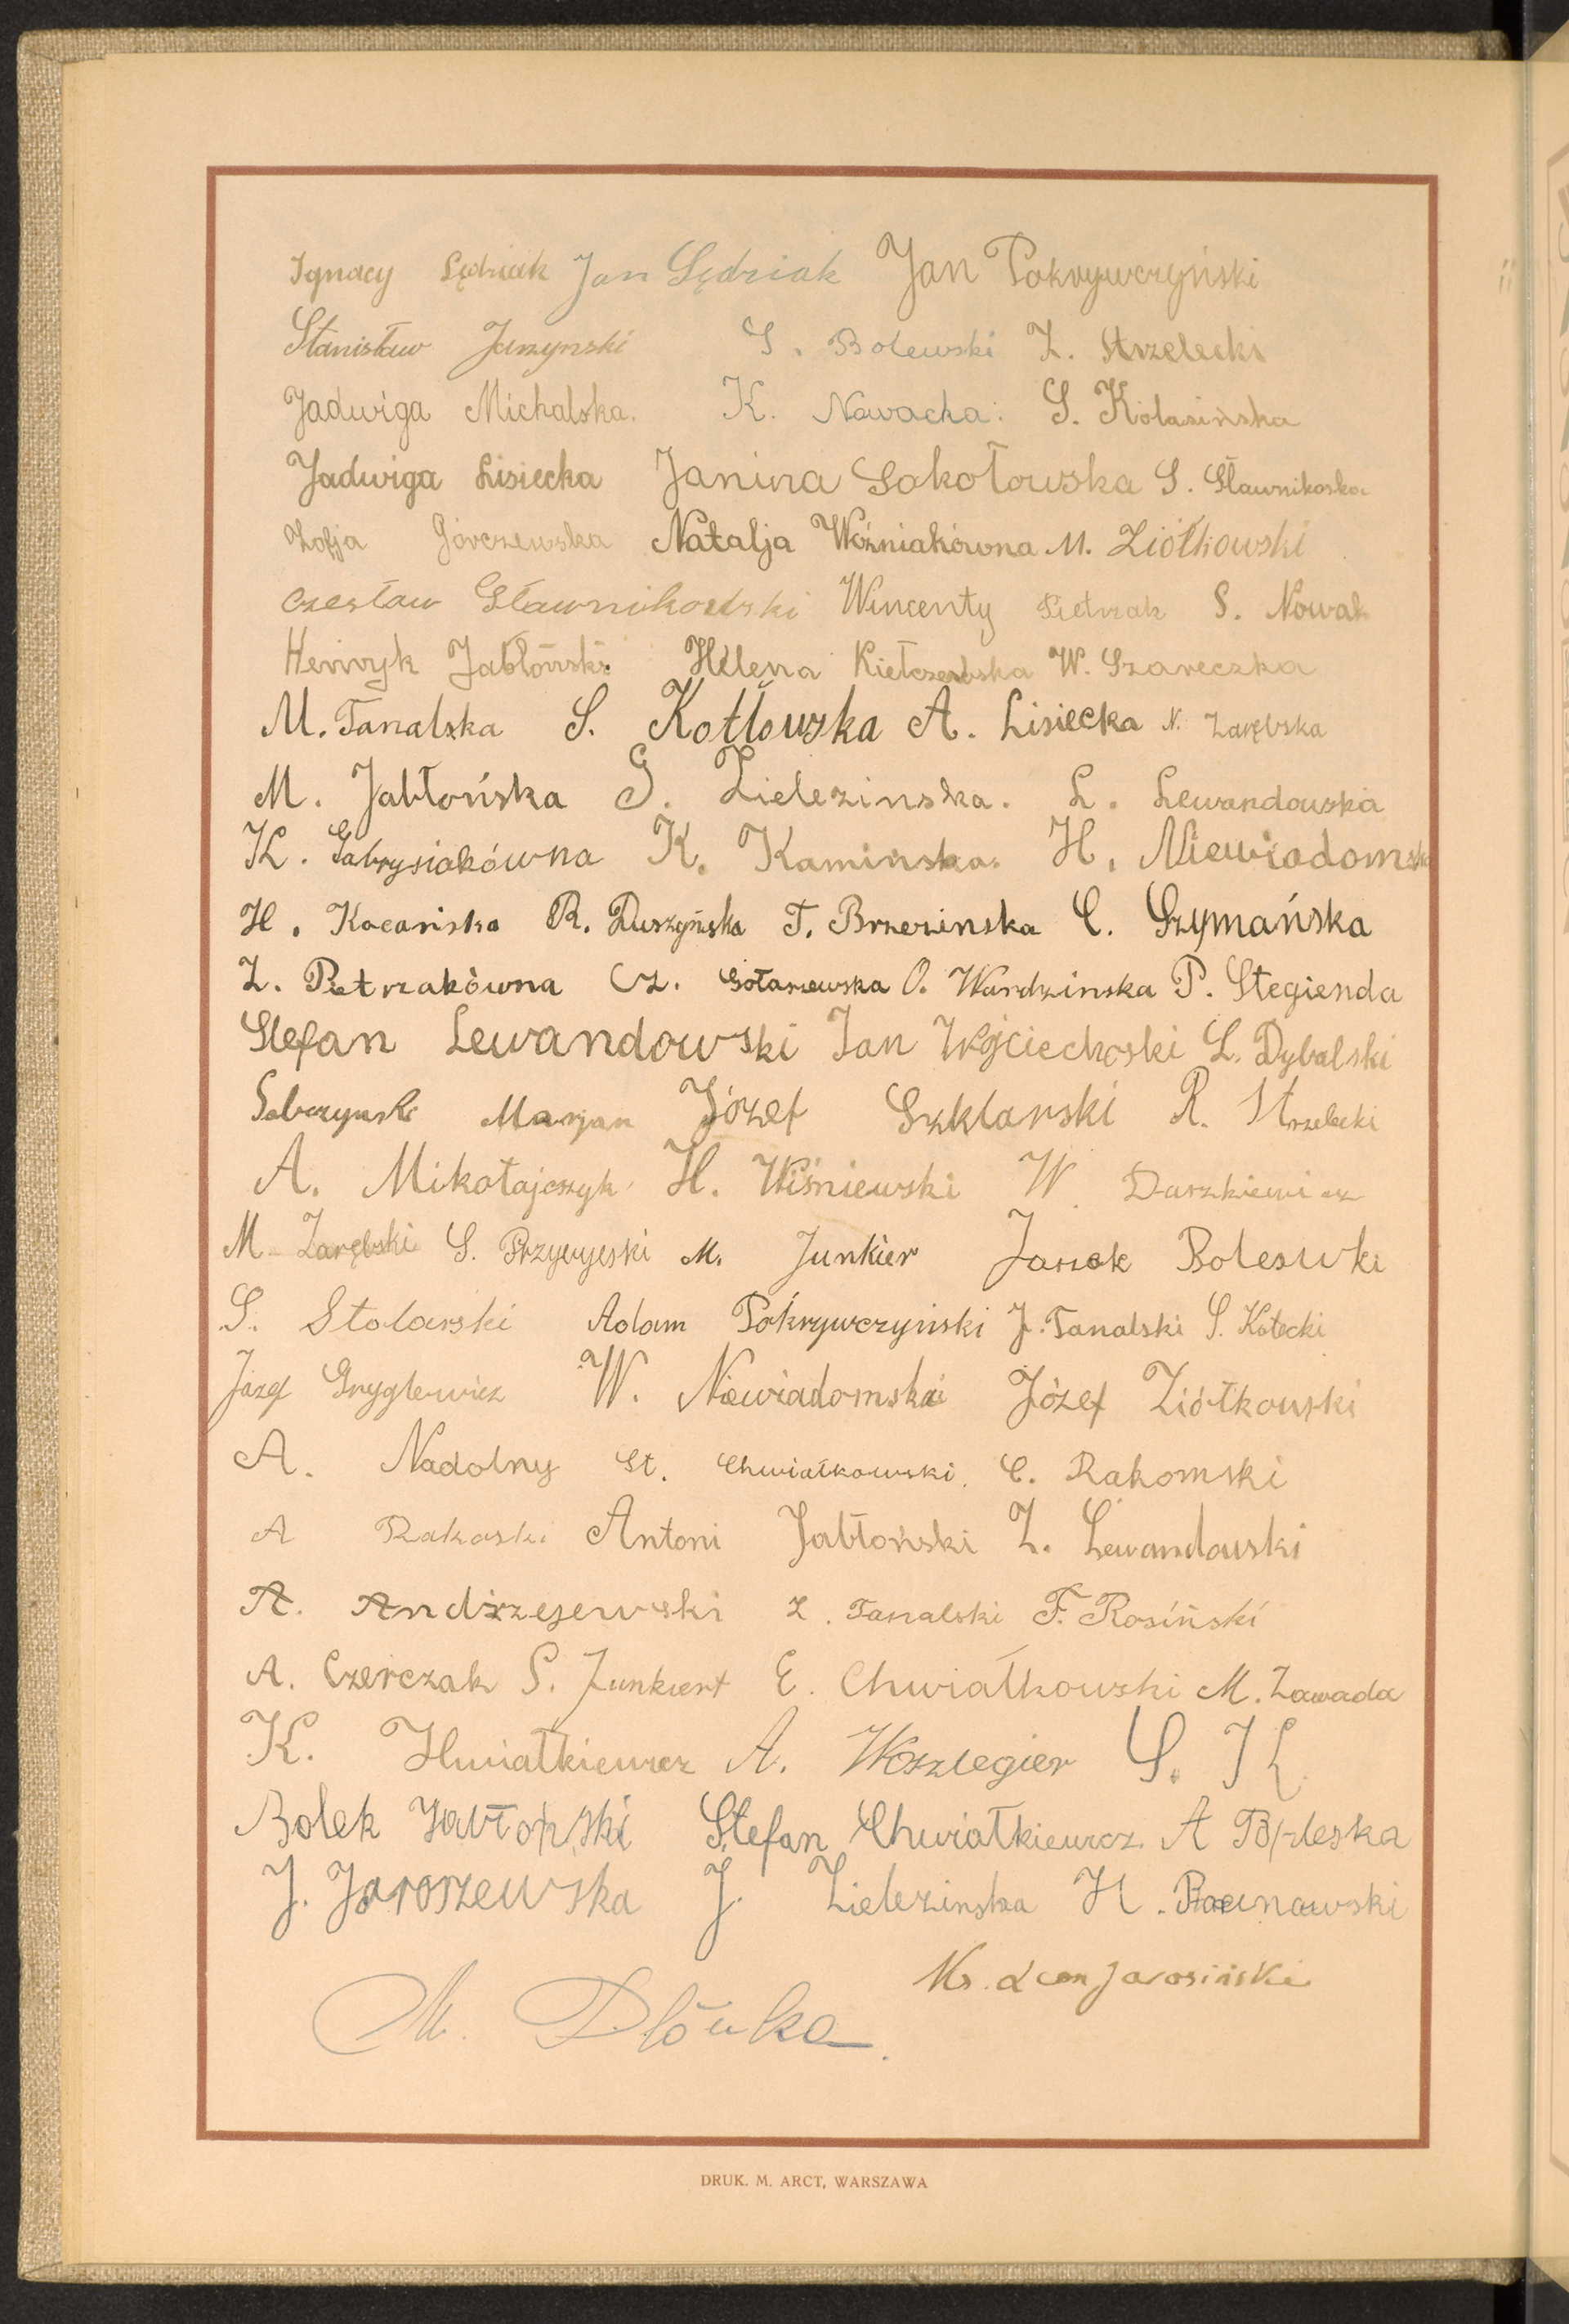 Ignacy Sędziak Jan Sędziak Jan Pokrywczyński
Stanisław Jerzynski S. Bolewski Z. Strzelecki
Jadwiga Michalska. K. Nawacka. S. Kolasińska
Jadwiga Lisiecka Janina Sokołowska S. Sławnikoska
Zofja Górczewska Natalja Woźniakówna M. Ziółkowski
Czesław Sławnikowski Wincenty Pietrzak S. Nowak
Henryk Jabłoński Helena Kiełczewska W. Szareczka
M. Tanalska S. Kotłowska A. Lisiecka N. Zarębska
M. Jabłońska G. Zielezinska. L. Lewandowska
K. Gabrysiakówna K. Kaminska. H. Niewiadomska
H. Kocańska R. Duszyńska T. Brzezinska C. Szymańska
Z. Pietrzakówna Cz. Gołaszewska O. Wardzinska P. Stegienda
Stefan Lewandowski Jan Wojciechoski L. Dybalski
Sobczynski Marjan Józef Szklarski R. Strzelecki
A. Mikołajczyk H. Wiśniewski W Daszkiewicz
M Zarębski S. M. Junkier Janek Boleswki
S. Stolarski Adam Pokrywczyński J. Tanalski S. Kotecki
Józef Gryglewicz W. Niewiadomski Józef Ziółkowski
A. Nadolny St. Chwiałkowski. C. Rakomski
A Rakoski Antoni Jabłoński Z. Lewandowski
A. Andrzejewski Z. Tanalski F. Rosiński
A. Czerczak S. Junkiert E. Chwiałkowski M. Zawada
K. Hwiałkiewicz A. Woszlegier S. K.
Bolek Jabłoński Stefan Chwiałkiewicz A
J. Jaroszewska J. Zielezinska H.
Ks. Leon Jarosiński
M. Dłóuka.
DRUK. M. ARCT, WARSZAWA